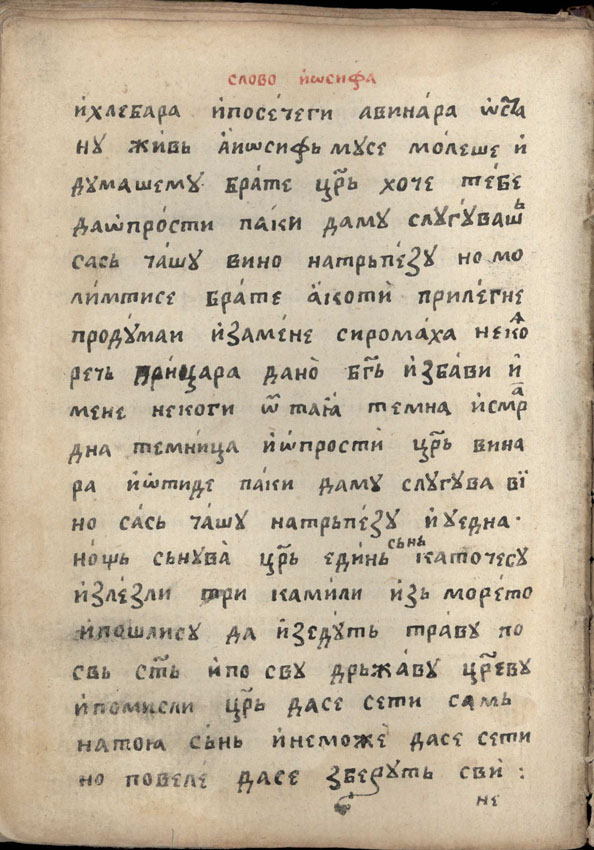 слово и҆ѡсифа
и҆хлебара и҆посе́чеги авина́ра ѡ҆ста
ну жи́вь а҆иѡсифь мусе мо́леше и҆
ду́машему бра́те цр҃ь хоче те́бе
даѡ҆про́сти па́ки даму слугу́вашь
сась ча́шу вино натрьпе́зу но мо
ли́мтисе бра́те а҆коти̇̀ приле́гне
проду́маи и҆заме́не сирома́ха неко
речь при́цара дано̀ бг҃ь и҆зба́ви и҆
мене некоги ѿ таꙗ҆ темна и҆смра
дна темни́ца и҆ѡ҆прости̇̀ цр҃ь вина
ра и҆ѡ҆ти́де па́ки даму слугува ви
но са́сь ча́шу натрьпе́зу и҆ у҆една
но́щь сьнува̀ цр҃ь еди́нь сьнь каточесу
и҆зле́зли три ками́ли и҆зь море́то
и҆пошлису да и҆зеду́ть тра́ву по
свь ст҃ь и҆по сву дрьжа́ву цр҃еву
и҆помисли цр҃ь дасе сети самь
натоꙗ сь́нь и҆немо́же дасе сети
но повеле́ дасе зберу́ть сви :
не